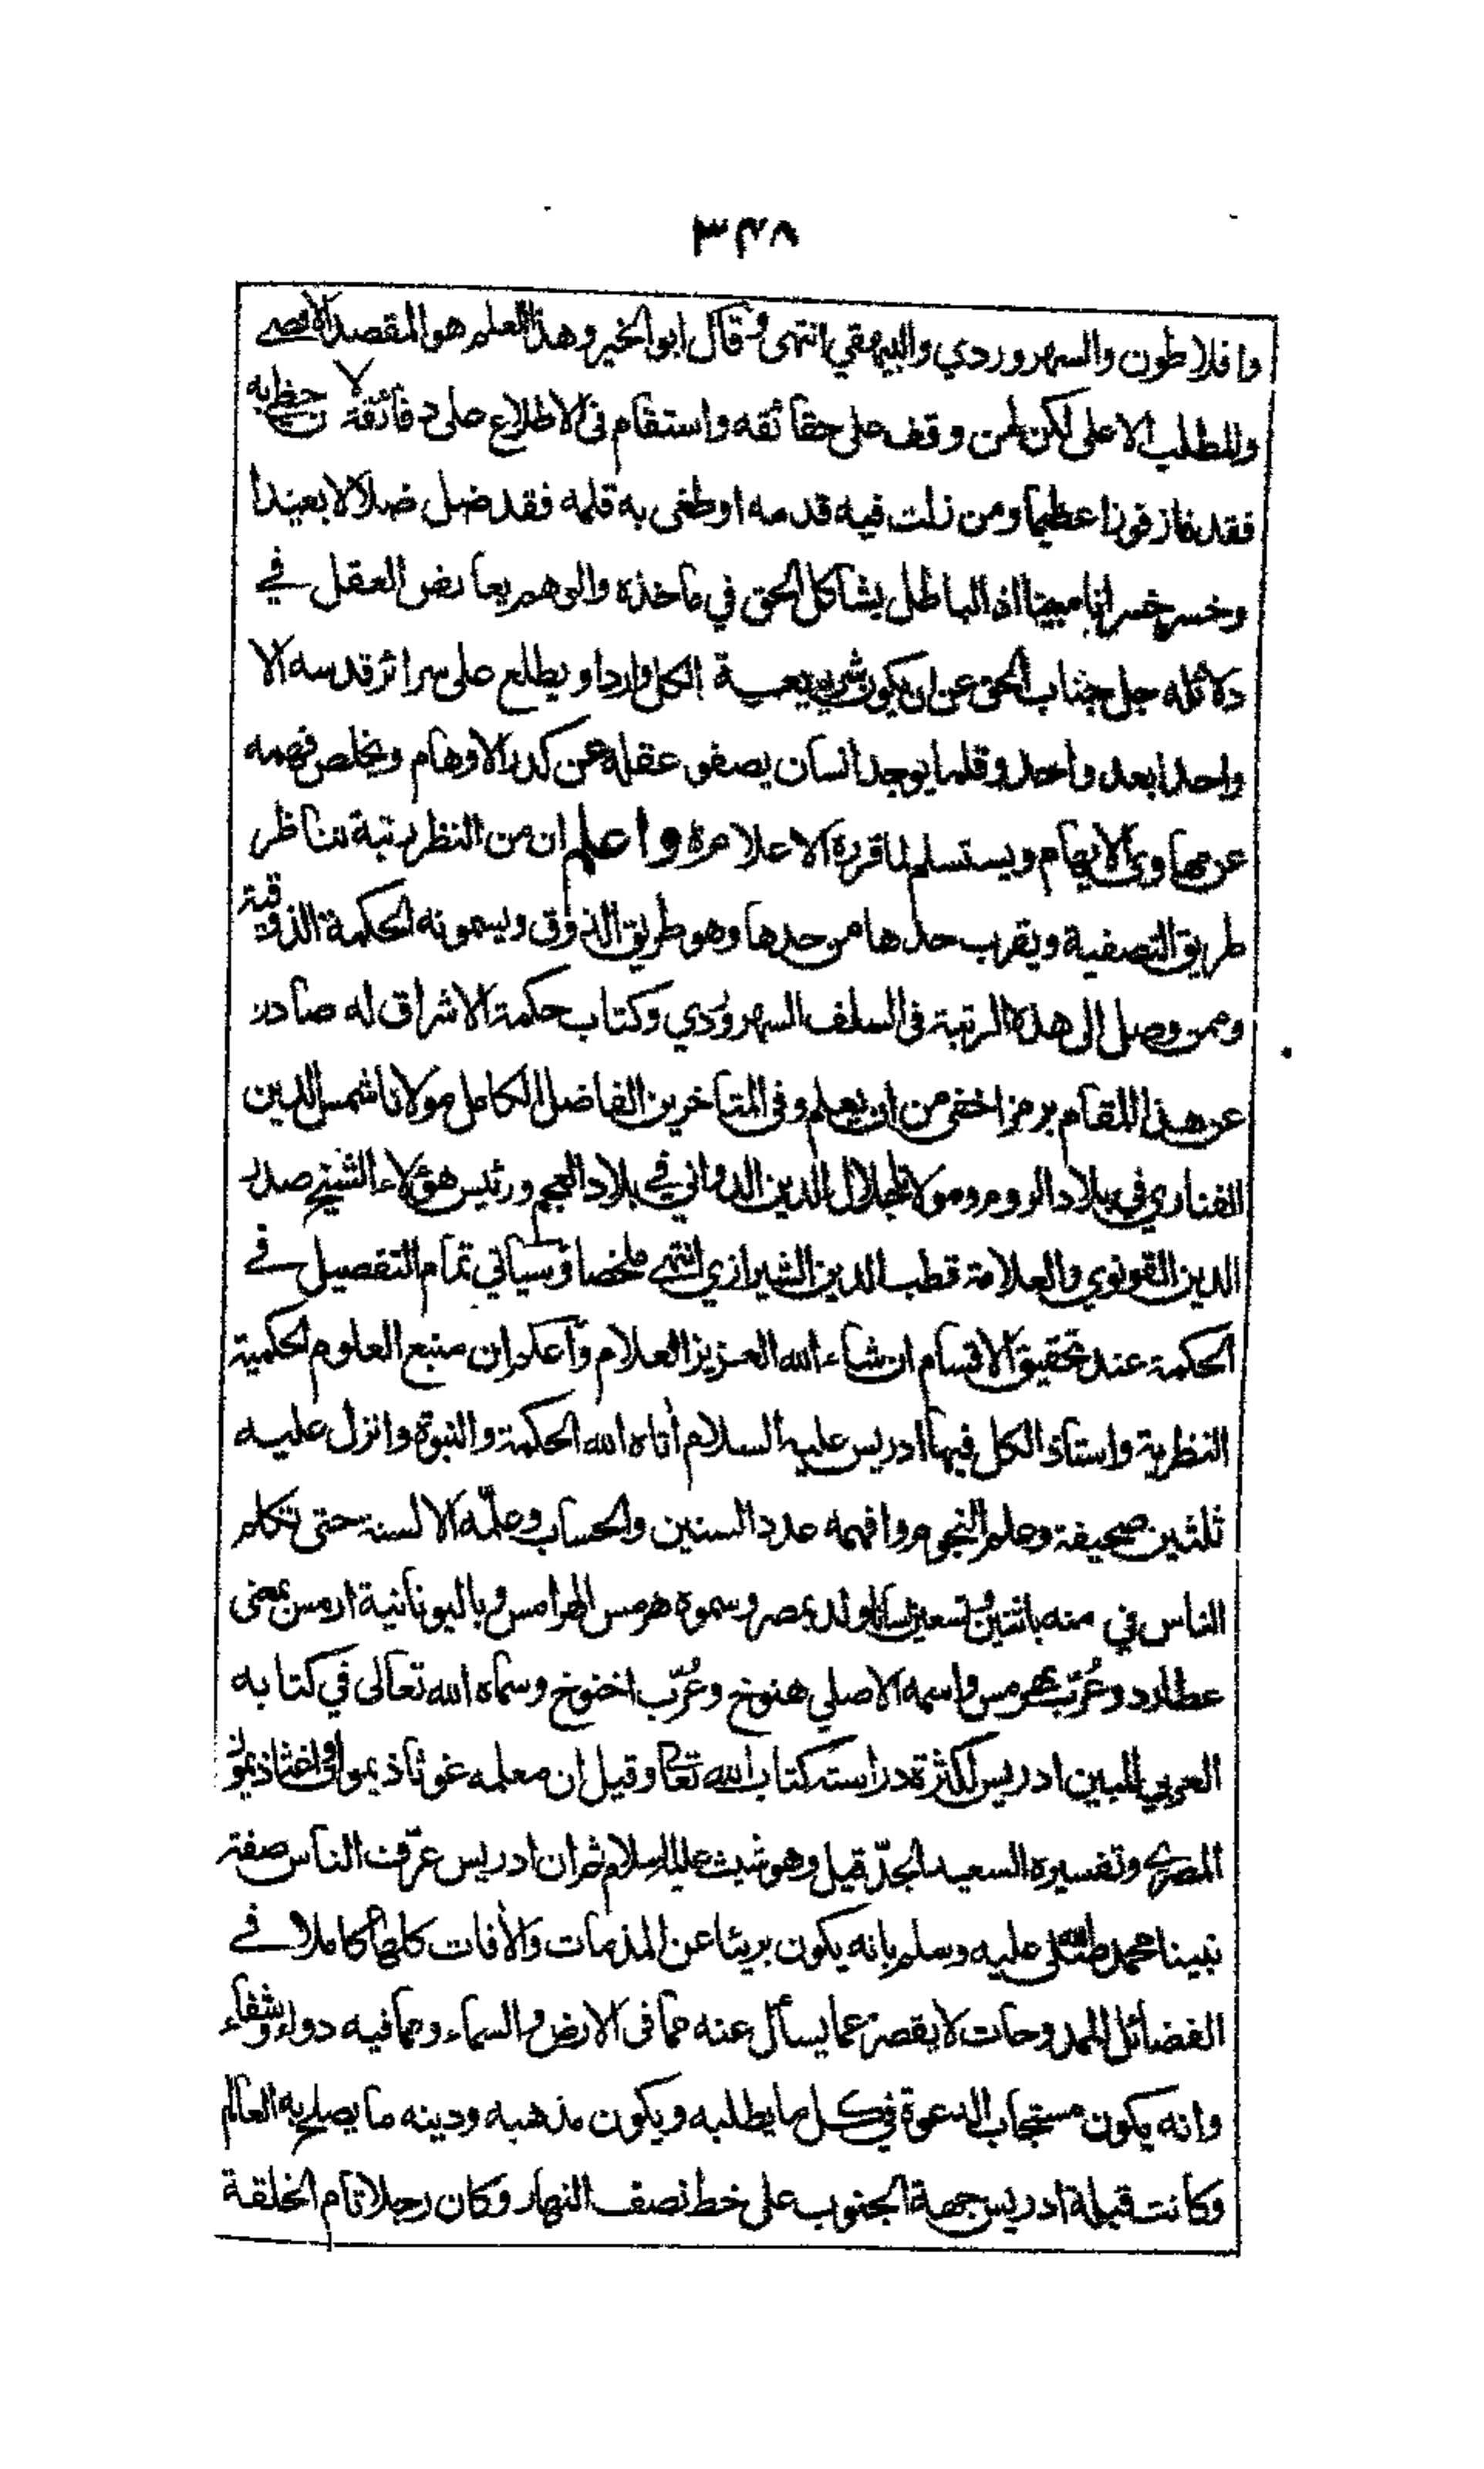 ٣٤٨
وافلاطون والسهروردي والبيهقي انتهى وقال ابو الخير وهذا العلم هو المقصد الاقصى
والمطلب الاعلى لكن لمن وقف على حقائقه واستقام في الاطلاع على دقائقه لا حظى به
فقد فاز فوزا عظيما ومن زلت فيه قدمه او طغى به قلمه فقد ضل ضلالا بعيدا
وخسر خسرانا مبينا اذ الباطل يشاكل الحق في مآخذه والوهم يعارض العقل في
دلائله جل جناب الحق عن ان يكون شريعة الكل وارد او يطلع على سرائر قدسه الا
واحدا بعد واحد وقلما يوجد انسان يصفو عقله عن كدر الاوهام ويخلص فهمه
عن مهاوى الايهام ويستسلم لما قرره الاعلام واعلم ان من النظر رتبة تناظر
طريق التصفية ويقرب حدها من حدها وهو طريق الذوق ويسمونه الحكمة الذوقية
وممن وصل الى هذه الرتبة في السلف السهروردي وكتاب حكمة الاشراق له صادر
عن هذا المقام برمز اخفى من ان يعلم وفى المتاخرين الفاضل الكامل مولانا شمس الدين
الفناري في بلاد الروم ومولانا جلال الدين الدواني في بلاد العجم ورئيس هؤلاء الشيخ صدر
الدين القونوي والعلامة قطب الدين الشيرازي انتهى ملخصا وسياتي تمام التفصيل في
الحكمة عند تحقيق الاقسام ان شاء الله العزيز العلام وآعلم ان منبع العلوم الحكمية
النظرية واستاذ الكل فيها ادريس عليه السلام أتاه الله الحكمة والنبوة وانزل عليه
ثلثين صحيفة وعلم النجوم وافهمه عدد السنين والحساب وعلّمه الالسنة حتى تكلم
الناس في منه باثنين وتسعين لسانا ولد بمصر وسموه هرمس الهرامس وباليونانية ارمس بمعنى
عطارد وعُرّب بهرمس واسمه الاصلي هنوخ وعُرّب اخنوخ وسماه الله تعالى في كتابه
العربي المبين ادريس لكثرة دراسته كتاب الله تعالى وقيل ان معلمه غوثاذيمون او اغثاذيمون
المصري وتفسيره السعيد الجدّ قيل وهو شيث عليه السلام ثم ان ادريس عرّف الناس صفة
نبينا محمد صلى الله عليه وسلم بانه يكون بريئا عن المذمات والأفات كلها كاملا في
الفضائل الممدوحات لا يقصر عما يسأل عنه مما فى الارض والسماء ومما فيه دواء وشفاء
وانه يكون مستجاب الدعوة في كل ما يطلبه ويكون مذهبه ودينه ما يصلح به العالم
وكانت قبلة ادريس جهة الجنوب على خط نصف النهار وكان رجلا تام الخلقة